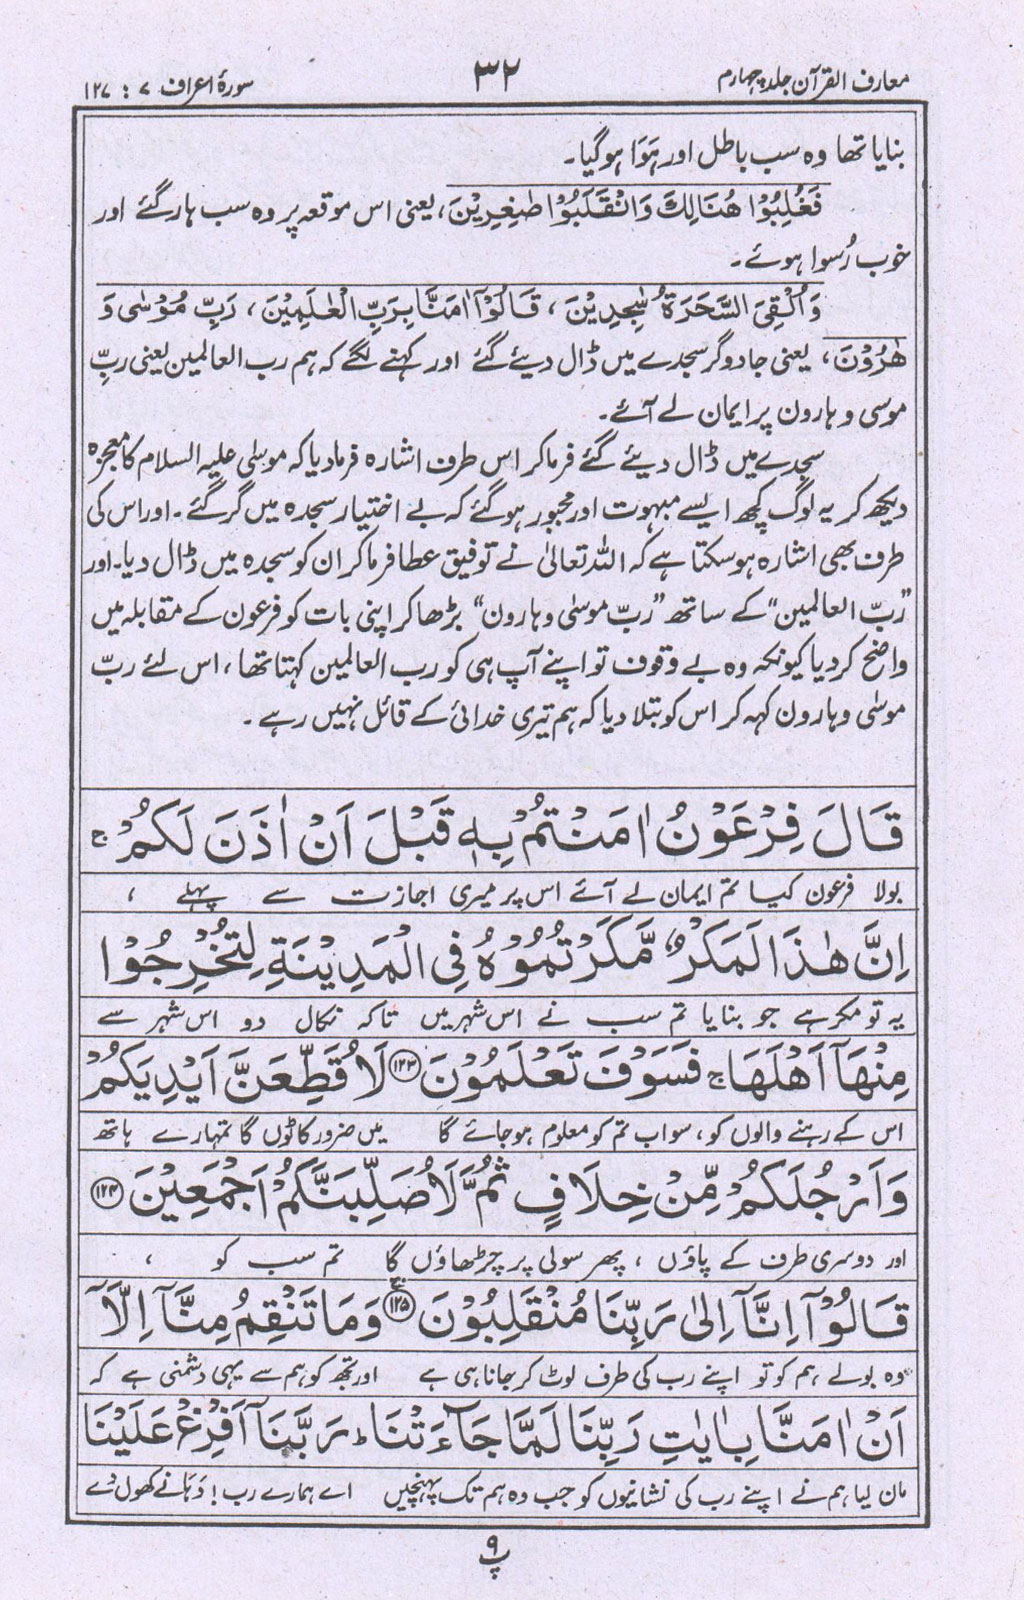 معارف القرآن جلد چہارم
۳۲
سورۂ اعراف ۷ : ۱۲۷
بنایا تھا وہ سب باطل اور ہَوَا ہوگیا۔
فَغُلِبُوْا هُنَالِكَ وَانْقَلَبُوْا صٰغِرِيْنَ، یعنی اس موقعہ پر وہ سب ہار گئے اور
خوب رُسوا ہوئے۔
وَاُلْقِيَ السَّحَرَةُ سٰجِدِيْنَ ، قَالُوْٓا اٰمَنَّا بِرَبِّ الْعٰلَمِيْنَ ، رَبِّ مُوْسٰى وَ
هٰرُوْنَ ، یعنی جادوگر سجدے میں ڈال دیئے گئے اور کہنے لگے کہ ہم رب العالمین یعنی ربِّ
موسی و ہارون پر ایمان لے آئے۔
سجدے میں ڈال دیئے گئے فرما کر اس طرف اشارہ فرمادیا کہ موسیٰ علیہ السلام کا معجزہ
دیکھ کر یہ لوگ کچھ ایسے مبہوت اور مجبور ہوگئے کہ بے اختیار سجدہ میں گر گئے۔ اور اس کی
طرف بھی اشارہ ہوسکتا ہے کہ اللہ تعالیٰ نے توفیق عطا فرما کر ان کو سجدہ میں ڈال دیا۔ اور
”ربّ العالمین“ کے ساتھ ”ربّ موسیٰ و ہارون“ بڑھا کر اپنی بات کو فرعون کے مقابلہ میں
واضح کردیا کیونکہ وہ بے وقوف تو اپنے آپ ہی کو رب العالمین کہتا تھا ، اس لئے ربّ
موسٰی و ہارون کہہ کر اس کو بتلا دیا کہ ہم تیری خدائی کے قائل نہیں رہے ۔
قَالَ فِرْعَوْنُ اٰمَنْتُمْ بِهٖ قَبْلَ اَنْ اٰذَنَ لَكُمْ ۚ
بولا فرعون کیا تم ایمان لے آئے اس پر میری اجازت سے پہلے ،
اِنَّ هٰذَا لَمَكْرٌ مَّكَرْتُمُوْهُ فِي الْمَدِيْنَةِ لِتُخْرِجُوْا
یہ تو مکر ہے جو بنایا تم سب نے اس شہر میں تاکہ نکال دو اس شہر سے
مِنْهَآ اَهْلَهَا ۚ فَسَوْفَ تَعْلَمُوْنَ ﴿۱۲۳﴾ لَاُقَطِّعَنَّ اَيْدِيَكُمْ
اس کے رہنے والوں کو ، سو اب تم کو معلوم ہوجائے گا میں ضرور کاٹوں گا تمہارے ہاتھ
وَاَرْجُلَكُمْ مِّنْ خِلَافٍ ثُمَّ لَاُصَلِّبَنَّكُمْ اَجْمَعِيْنَ ﴿۱۲۴﴾
اور دوسری طرف کے پاؤں ، پھر سولی پر چڑھاؤں گا تم سب کو ،
قَالُوْٓا اِنَّآ اِلٰى رَبِّنَا مُنْقَلِبُوْنَ ﴿۱۲۵﴾ ۚ وَمَا تَنْقِمُ مِنَّآ اِلَّآ
وہ بولے ہم کو تو اپنے رب کی طرف لوٹ کر جانا ہی ہے اور تجھ کو ہم سے یہی دشمنی ہے کہ
اَنْ اٰمَنَّا بِاٰيٰتِ رَبِّنَا لَمَّا جَآءَتْنَا ؕ رَبَّنَآ اَفْرِغْ عَلَيْنَا
مان لیا ہم نے اپنے رب کی نشانیوں کو جب وہ ہم تک پہنچیں اے ہمارے رب! دَہانے کھول دے
پ ۹